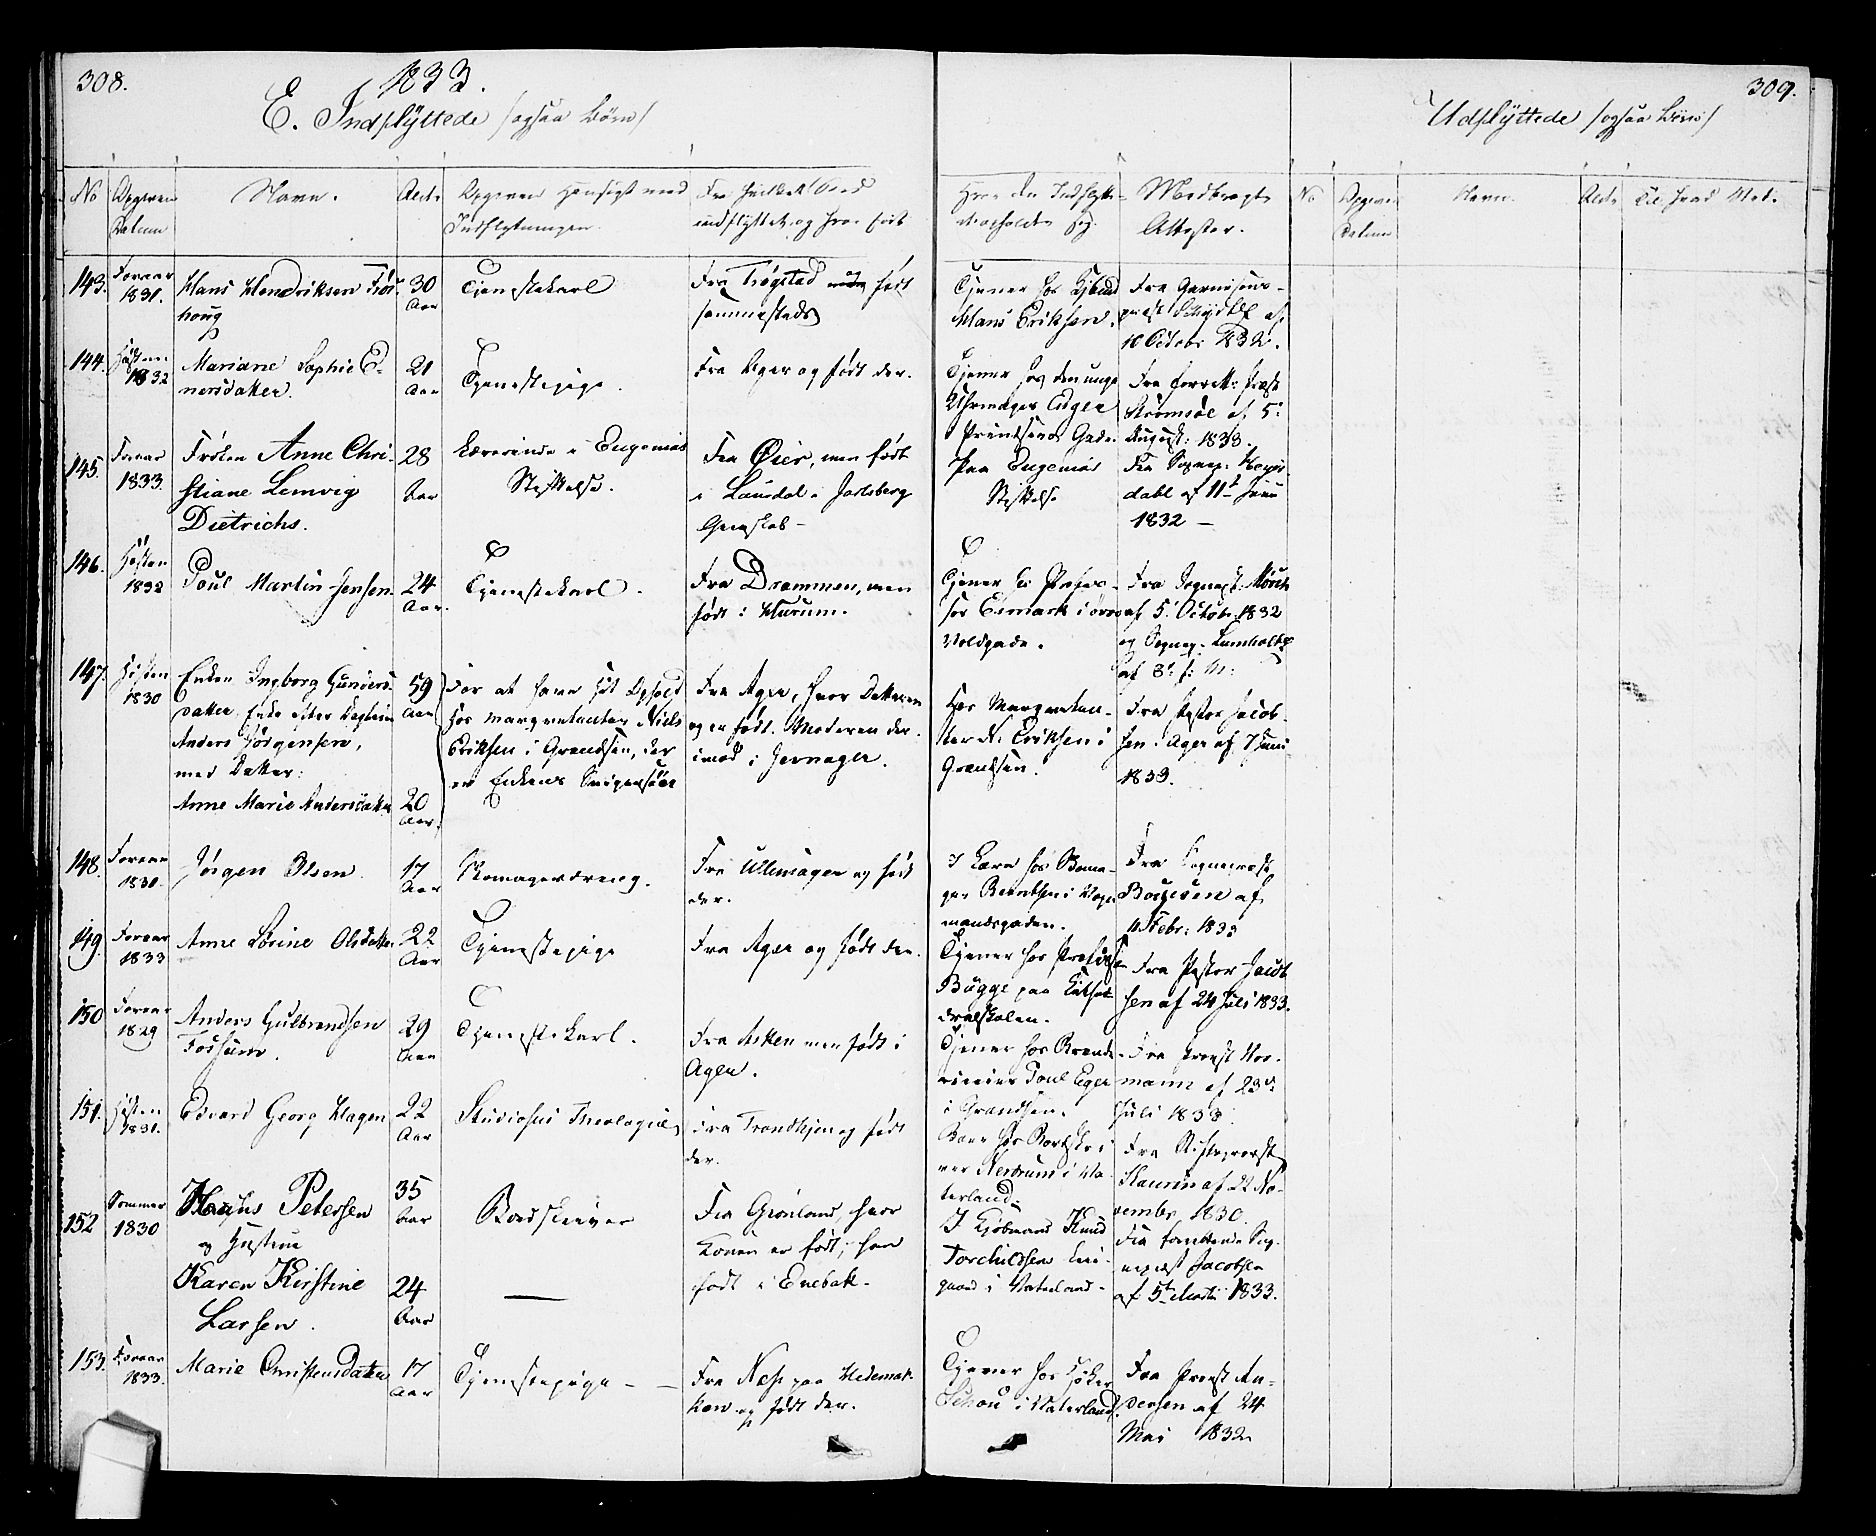 308.
1833.
E. Indflyttede /ogsaa Börn/
No
Opgiven Datum
Navn.
Alder
Opgiven Hensigt med Indflytningen.
Fra hvilket Sted indflyttet og hvor født
Hvor den Indflytte opholder sig.
Medbragte Attester.
309.
Udflyttede /ogsaa Börn/
No
Opgiven Datum
Navn.
Alder
Til hvad Sted.
143.
Foraar 1831.
Hans Hendriksen Frös-
houg
30 Aar
Tjenestekarl
Fra Trögstad født
sammesteds
Tjener hos
Hans Eriksen.
Fra Garnisons-
præst af
10 Octobr 1832.
144.
Høsten 1832
Mariane Sophie E-
nersdatter.
21 Aar
Tjenestepige.
Fra Ager og født der.
Tjener hos den unge
Uhrmager Eger
Prindsens Gade.
Fra Præst
Strömsöe af 5:
August: 1833.
145.
Foraar 1833.
Fröken Anne Chri-
stiane Lemvig
Dietrichs.
28 Aar
Lærerinde i Eugenias
Stiftelse.
Fra Øier, men født
i Laurdal i Jarlsberg
Grevskab –
Paa Eugenias
Stiftelse
Fra Sognep:
dahl af 11te Juni
1832 –
146.
Høsten 1832
Poul Martin Jensen
24 Aar.
Tjenestekarl.
Fra Drammen, men
født i Hurum.
Tjener hos Profes-
sor Esmark i øvre
Voldgade.
Fra Sognepr: Mörch
af 5 Octobr 1832
og Sognep: Lumholtz
af 8: s: M:
147.
Høsten 1830
Enken Ingborg Gunders-
datter Enke efter
Anders Jörgensen,
med Datter:
Anne Marie Andersdatter
59 Aar
20 Aar.
For at have sit Ophold
hos Marqvetenter Niels
Eriksen i Grændsen, der
er Enkens Svigersöns
Fra Ager, hvor Datteren
og er født. Moderen der-
imod i Jevnager.
Hos Marqveten-
ter N. Eriksen i
Grændsen.
Fra Pastor Jacob-
sen i Ager af 7 Juni
1833.
148.
Foraar 1831.
Jörgen Olsen
17 Aar
Skomagerdreng.
Fra Ullensager og født
der.
I Lære hos
Berntsen i Vogn
mandsgaden.
Fra Sognepræst
Borgesen af
11 Febr: 1833
149.
Foraar 1833
Anne Sörine Olsdatter
22 Aar
Tjenestepige
Fra Ager og født der.
Tjener hos Professor
Bugge paa Kathe-
dralskolen.
Fra Pastor Jacob
sen af 24 Juli 1833.
150
Foraar 1829
Anders Gulbrandsen
Fossum.
29 Aar
Tjenestekarl.
Fra Asken men født i
Ager.
Tjener hos Brænde-
viinier Poul Eger
i Grændsen.
Fra Provst Nor-
mann af 23de
Juli 1833
151.
Høsten 1831.
Edvard Georg Hagen
22 Aar
Studiosus Theologiæ
Fra Trondhjem og født
der.
Boer hos Bordskri-
ver Nestrum i Va-
terland.
Fra Stiftsprovst
af 22 No-
vembr, 1830.
152
Sommer 1830
Hans Petersen
og Hustrue
Karen Kirstine
Larsen.
35 Aar
24 Aar
Bordskriver
—
Fra Grønland, hvor
Konen er født; han
født i Enebak.
I Kjöbmand Knud
Torchildsens Leie-
gaard i Vaterland.
Fra Sog-
nepræst Jacobsen
af 5te Martii 1833.
153.
Foraar 1833.
Marie Christensdatter
17 Aar
Tjenestepige –
Fra Næss paa Hedemar-
ken og født der.
Tjener hos Höker
Schou i Vaterland.
Fra Provst An-
dersen af 24
Mai 1832